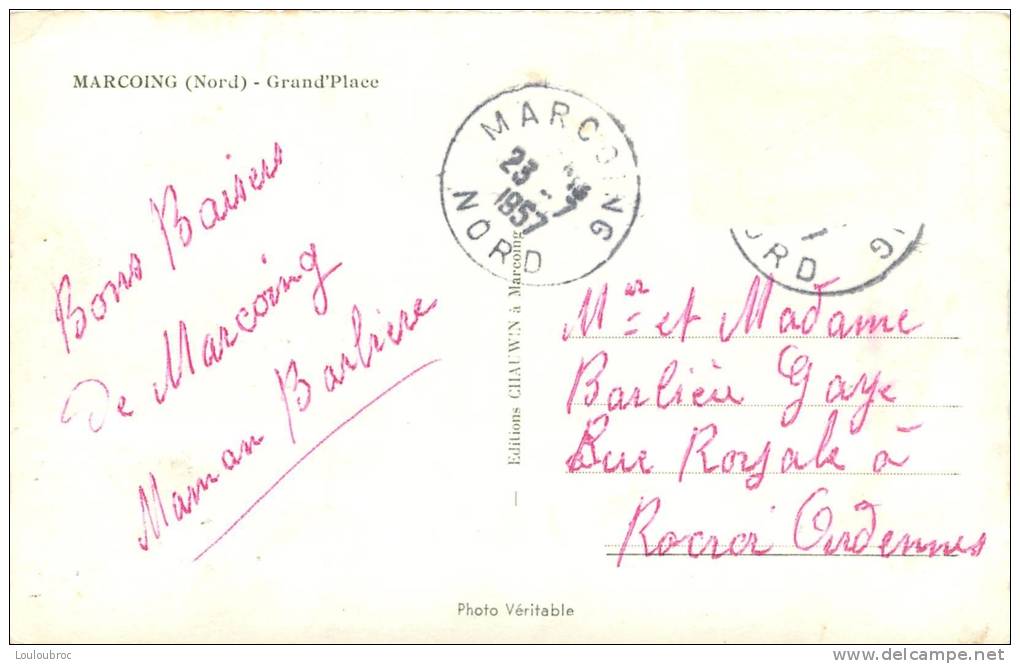 MARCOING (Nord) - Grand'Place
MARCOING
23 - 7
1957
NORD
ORD
G
Bons Baisers
De Marcoing
Maman Barbière
Editions CHAUWIN à Marcoing
Mr et Madame
Barlière Gaye
Rue Royale à
Rocroi Ardennes
Photo Véritable
Louloubroc
www.delcampe.net